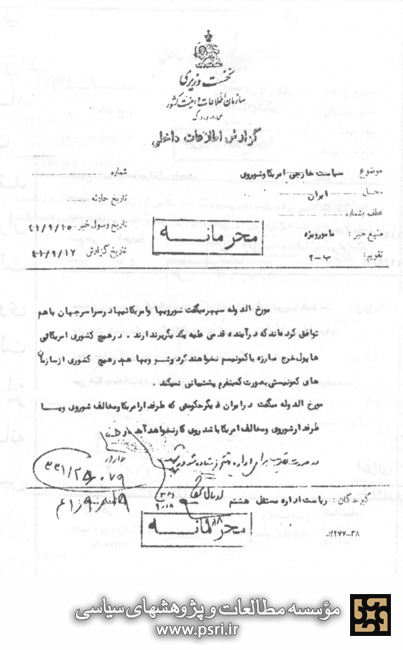 نخست وزیری
سازمان اطلاعات و امنیت کشور
گزارش اطلاعات داخلی
موضوع سیاست خارجی امریکا و شوروی
شماره
محل ایران
تاریخ حادثه
عطف بشماره
تاریخ وصول خبر ۴۱/۹/۱۵
منبع خبر : مامور ویژه
تاریخ گزارش ۴۱/۹/۱۷
تقویم : ب-۲
محرمانه
مورخ الدوله سپهر میگفت شورویها و امریکائیها در سراسر جهان با هم
توافق کرده اند که در آینده قدمی علیه یکدیگر برندارند . در هیچ کشوری امریکائی
ها پول خرج مبارزه با کمونیسم نخواهند کرد و شورویها هم در هیچ کشوری از سازمان
های کمونیستی بصورت کمینفرم پشتیبانی نمیکند .
مورخ الدوله میگفت در ایران دیگر حکومتی که طرفدار امریکا و مخالف شوروی و یا
طرفدار شوروی و مخالف امریکا باشد روی کار نخواهد آمد
۳۳۱/۲۵۰۷۹
گیرندگان : ریاست اداره مستقل هشتم
محرمانه
مؤسسه مطالعات و پژوهشهای سیاسی
www.psri.ir